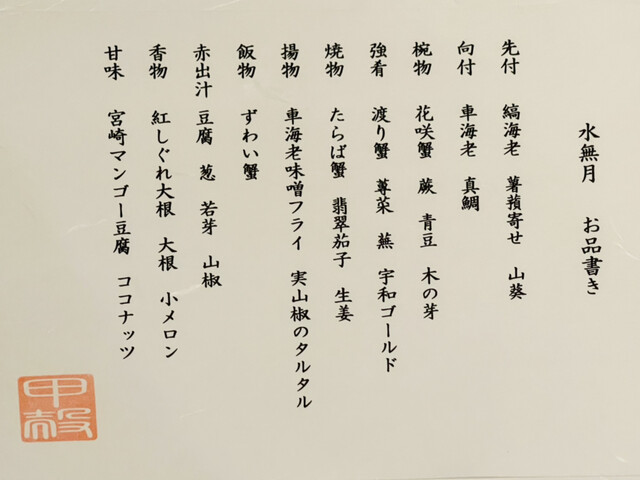 水無月　お品書き
先付　縞海老　薯蕷寄せ　山葵
向付　車海老　真鯛
椀物　花咲蟹　蕨　青豆　木の芽
強肴　渡り蟹　蓴菜　蕪　宇和ゴールド
焼物　たらば蟹　翡翠茄子　生姜
揚物　車海老味噌フライ　実山椒のタルタル
飯物　ずわい蟹
赤出汁　豆腐　葱　若芽　山椒
香物　紅しぐれ大根　大根　小メロン
甘味　宮崎マンゴー豆腐　ココナッツ
甲殻